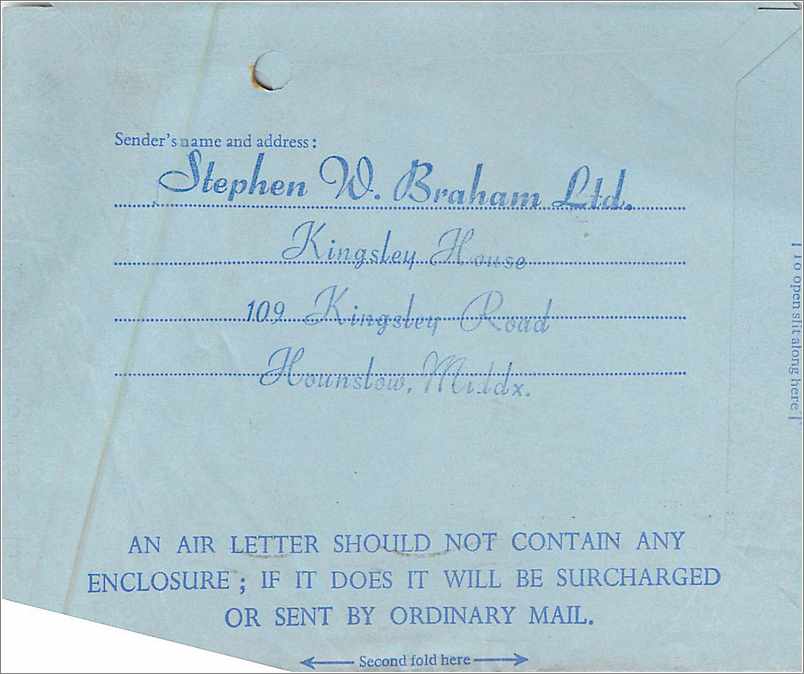 Sender's name and address:
Stephen W. Braham Ltd.
Kingsley House
109 Kingsley Road
Hounslow, Middx.
[To open slit along here]
AN AIR LETTER SHOULD NOT CONTAIN ANY
ENCLOSURE ; IF IT DOES IT WILL BE SURCHARGED
OR SENT BY ORDINARY MAIL.
Second fold here